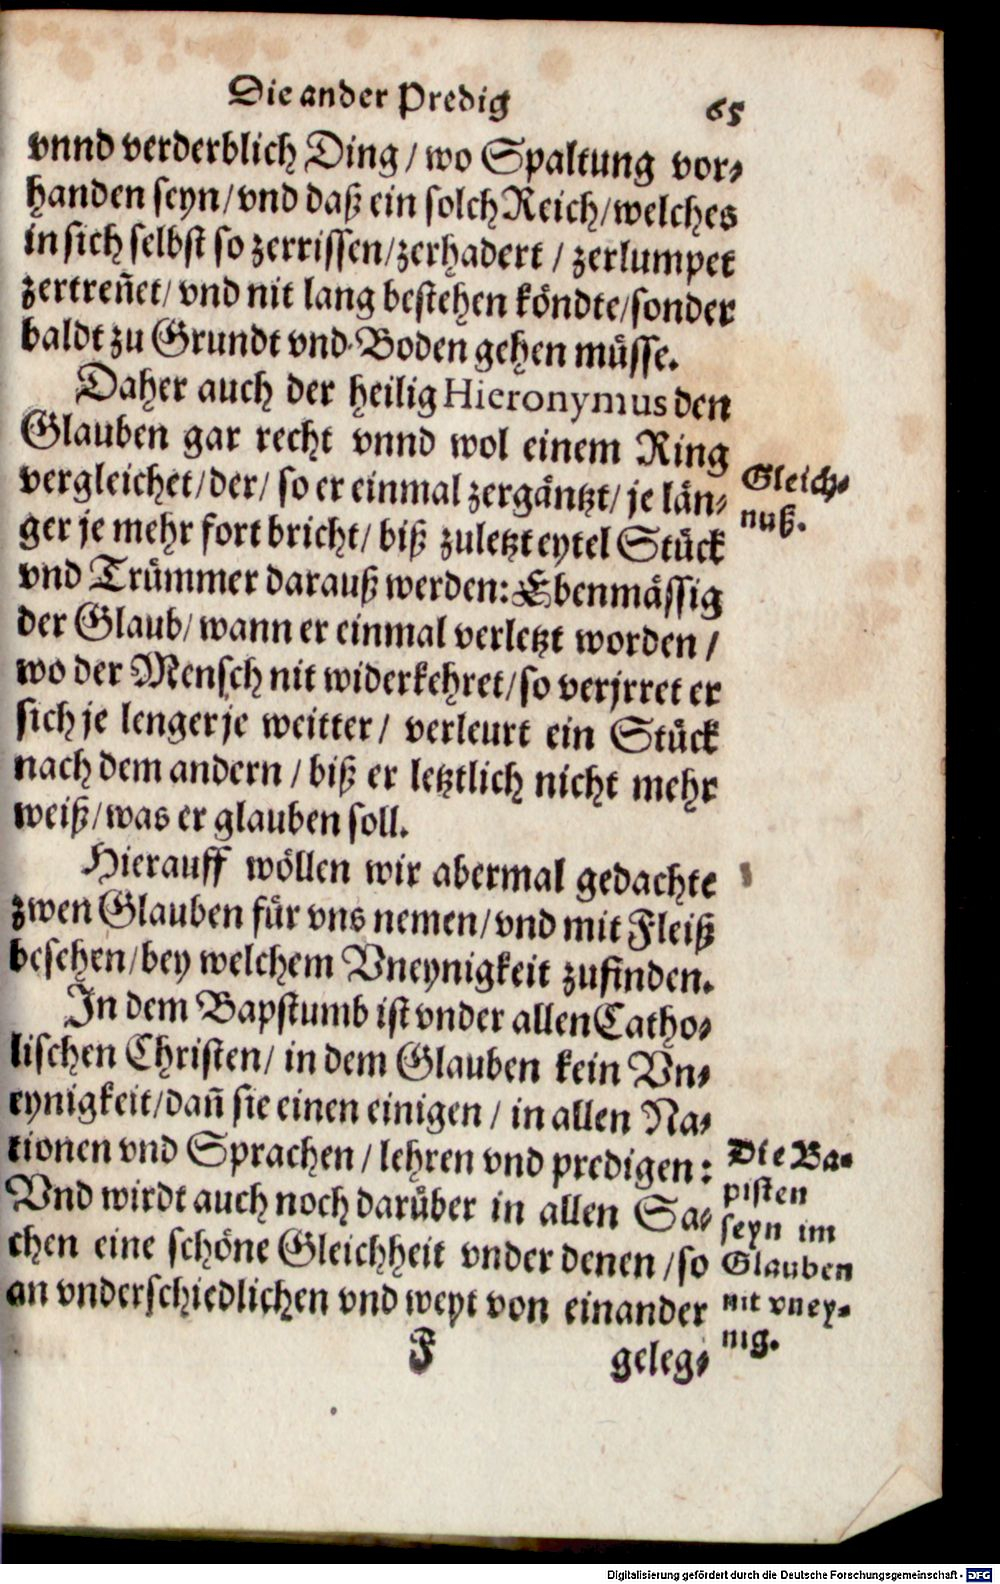 Die ander Predig 65
vnnd verderblich Ding / wo Spaltung vor⸗
handen seyn / vnd daß ein solch Reich / welches
in sich selbst so zerrissen / zerhadert / zerlumpet
zertreñet / vnd nit lang bestehen köndte / sonder
baldt zu Grundt vnd Boden gehen müsse.
Daher auch der heilig Hieronymus den
Glauben gar recht vnnd wol einem Ring
vergleichet / der / so er einmal zergäntzt / je län⸗
ger je mehr fort bricht / biß zuletzt eytel Stück
vnd Trümmer darauß werden: Ebenmässig
der Glaub / wann er einmal verletzt worden /
wo der Mensch nit widerkehret / so verjrret er
sich je lenger je weitter / verleurt ein Stück
nach dem andern / biß er letztlich nicht mehr
weiß / was er glauben soll.
Gleich⸗
nuß.
Hierauff wöllen wir abermal gedachte
zwen Glauben für vns nemen / vnd mit Fleiß
besehen / bey welchem Vneynigkeit zufinden.
In dem Bapstumb ist vnder allen Catho⸗
lischen Christen / in dem Glauben kein Vn⸗
eynigkeit / dañ sie einen einigen / in allen Na⸗
tionen vnd Sprachen / lehren vnd predigen:
Vnd wirdt auch noch darüber in allen Sa⸗
chen eine schöne Gleichheit vnder denen / so
an vnderschiedlichen vnd weyt von einander
Die Ba⸗
pisten
seyn im
Glauben
nit vney⸗
nig.
F geleg⸗
Digitalisierung gefördert durch die Deutsche Forschungsgemeinschaft - DFG